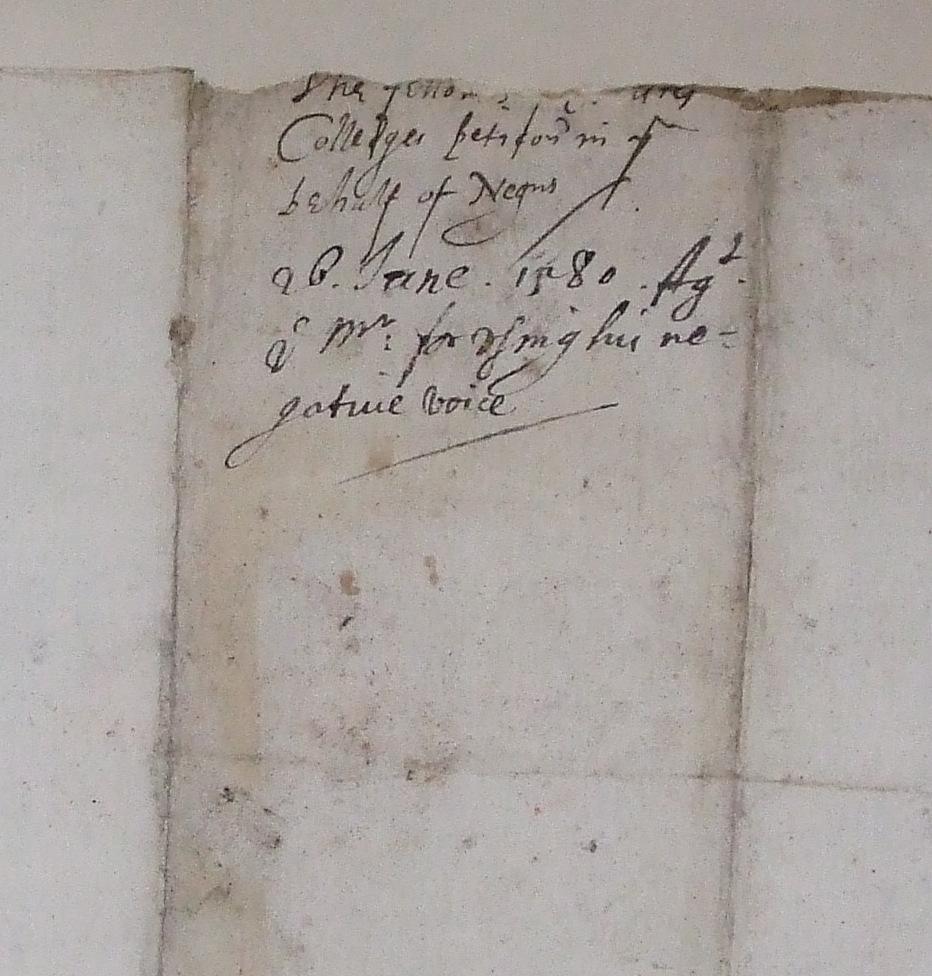 The
Colledges petition in yͤ
behalf of Negus
26. June. 1580. Agᵗ.
yͤ Mʳ: for vsing his ne=
gatiue voice